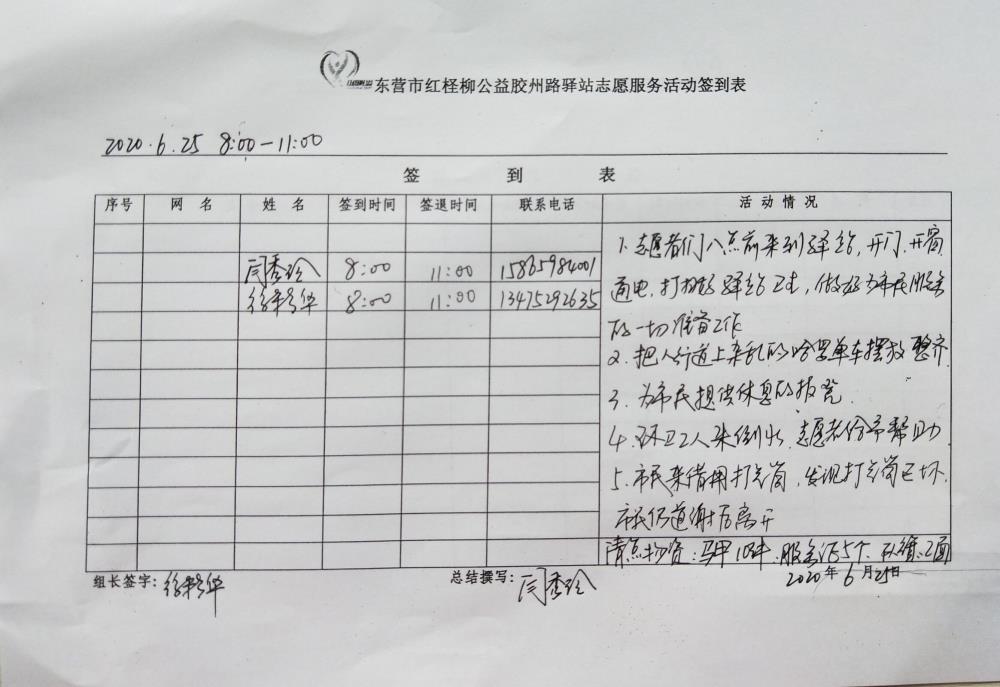 东营市红柽柳公益胶州路驿站志愿服务活动签到表
2020.6.25 8:00-11:00
签 到 表
序号 网名 姓名 签到时间 签退时间 联系电话 活动情况
闫秀玲 8:00 11:00 15865984001
8:00 11:00 13475292635
1.志愿者们八点前来到驿站,开门.开窗
通电.打扫好驿站卫生,做好为市民服务
的一切准备工作
2.把人行道上杂乱的哈罗单车摆放整齐
3.为市民提供休息的板凳.
4.环卫工人来倒水.志愿者给予帮助
5.市民来借用打气筒,发现打气筒已坏.
市民仍道谢后离开
清点物资:马甲10件.服务证5个. 2面
组长签字: 总结撰写:闫秀玲 2020年6月25日